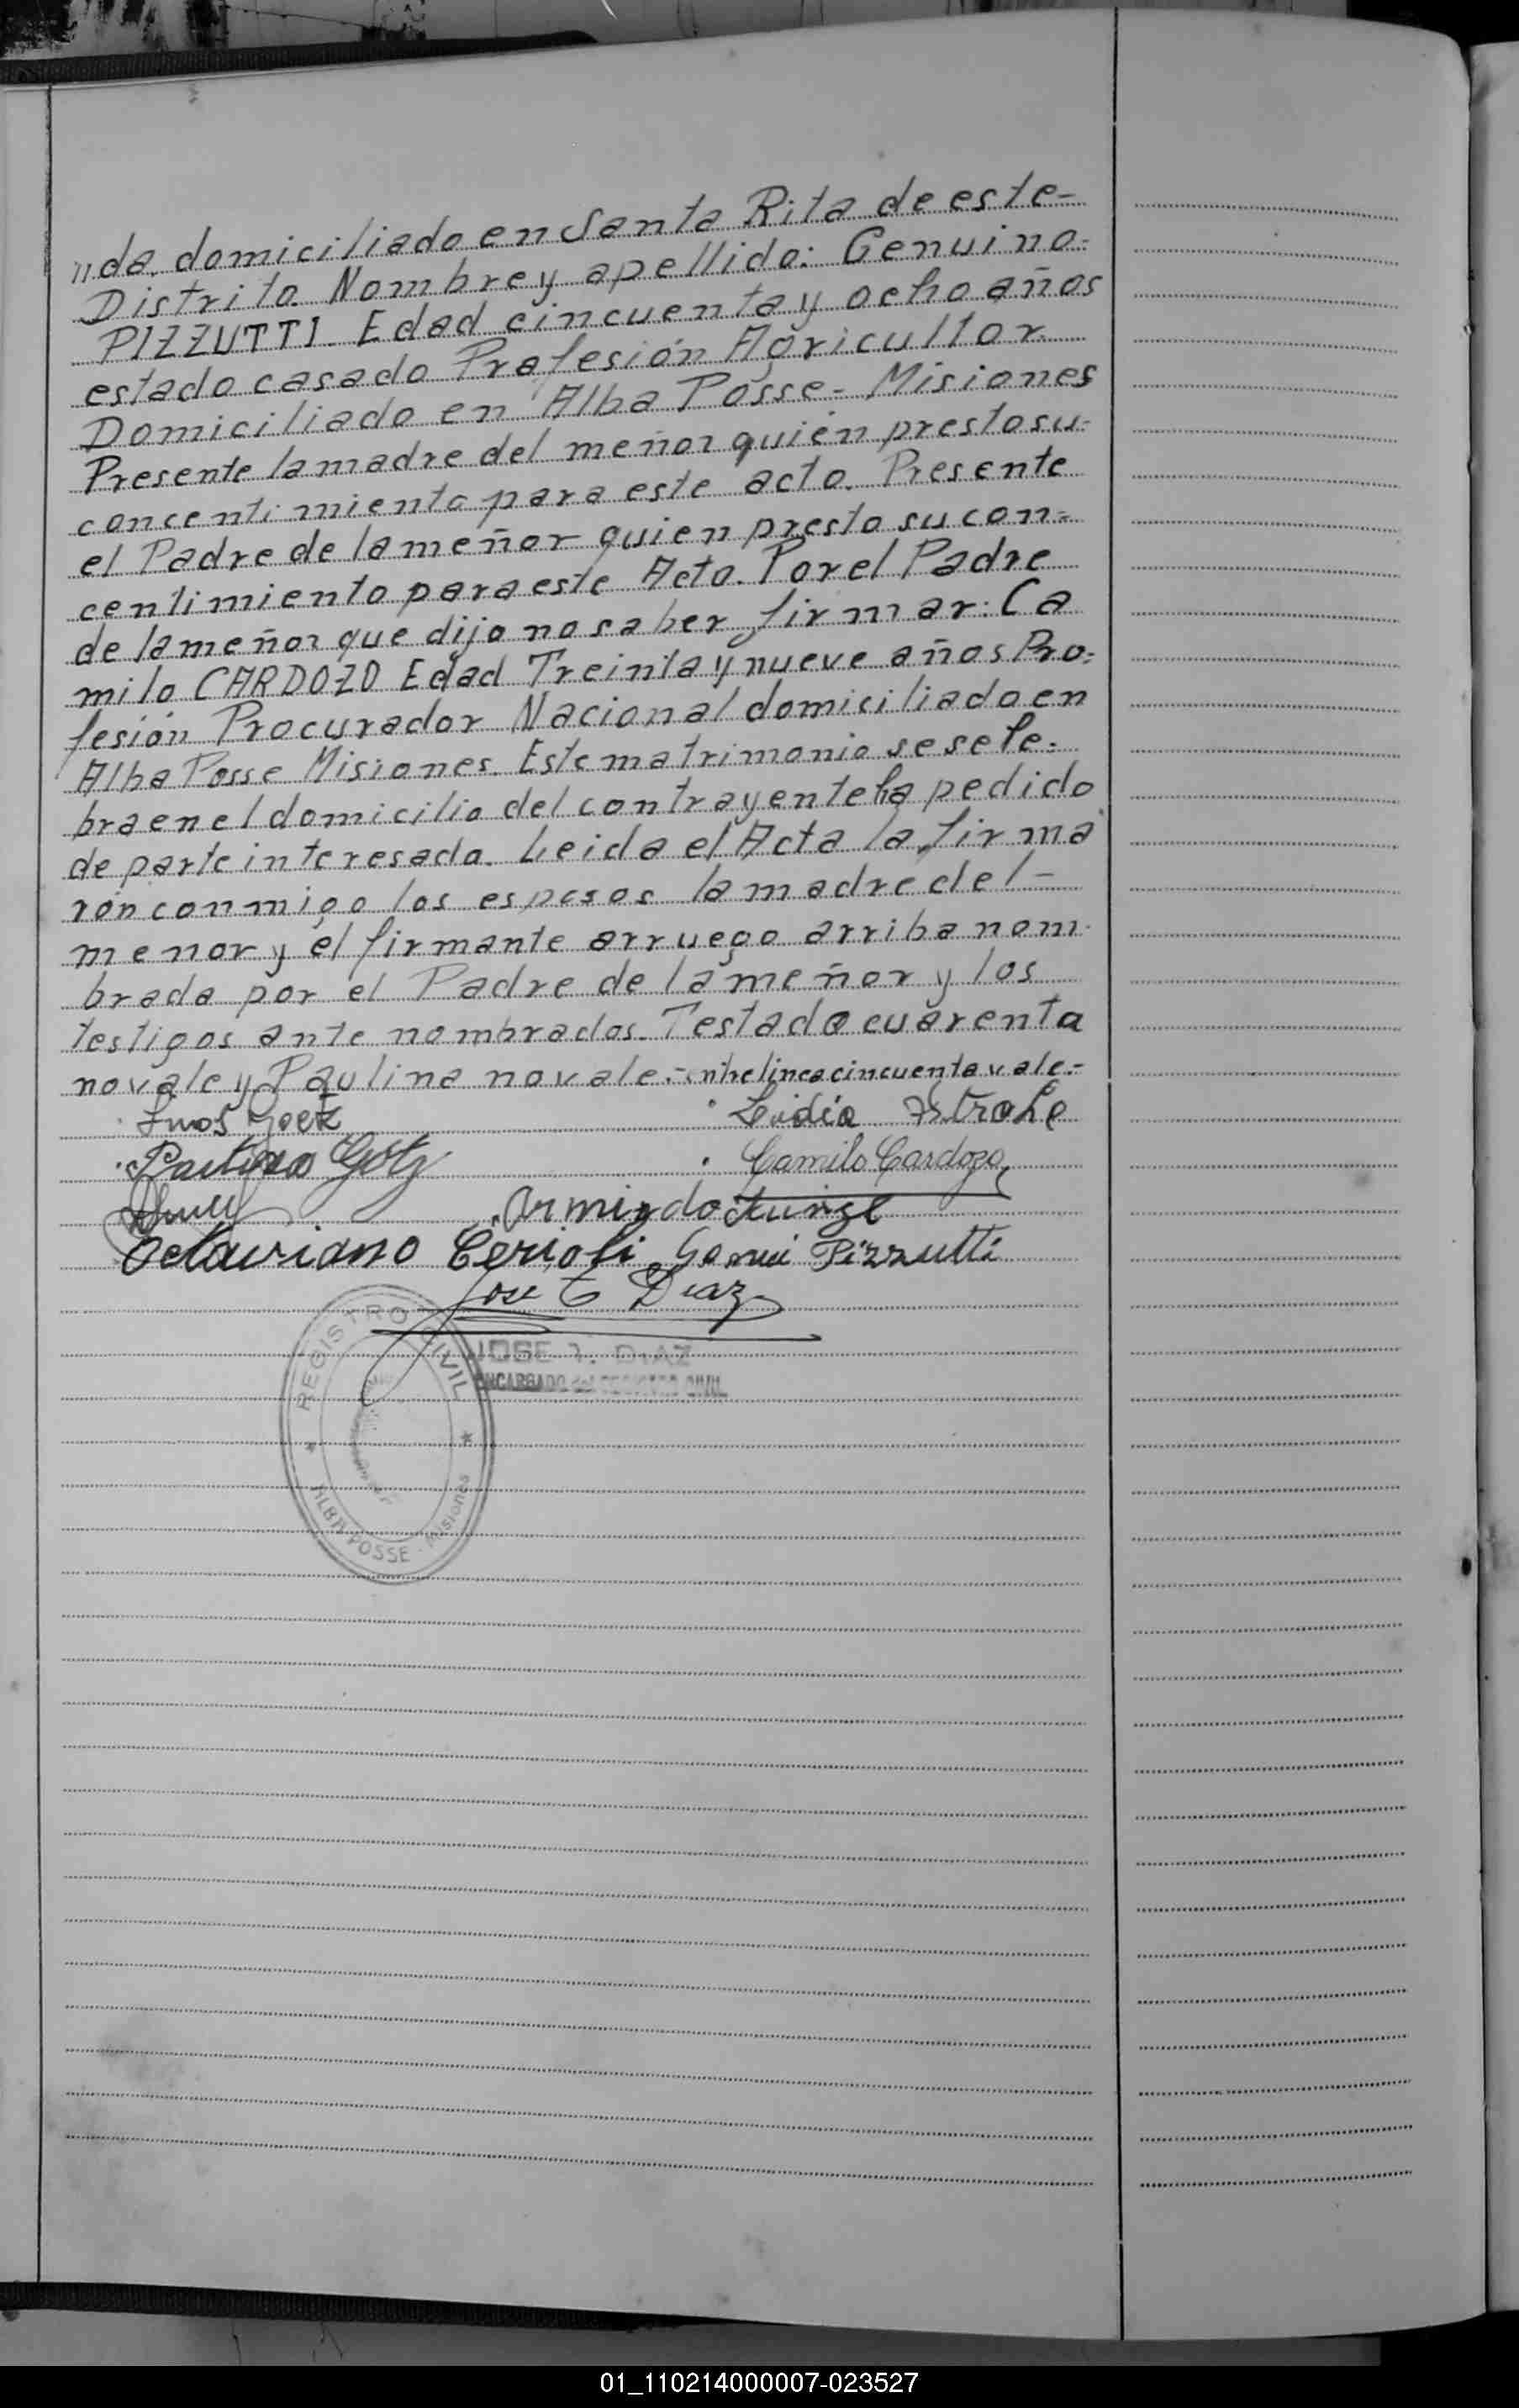 "da. domiciliado en Santa Rita de este-
Distrito. Nombre y apellido: Genuino-
PIZZUTTI. Edad cincuenta y ocho años
estado casado Profesión Agricultor.
Domiciliado en Alba Posse - Misiones
Presente la madre del meñor quien presto su-
concentimiento para este acto. Presente
el Padre de la meñor quien presto su con-
centimiento para este Acto. Por el Padre
de la meñor que dijo no saber firmar: Ca
milo CARDOZO Edad Treinta y nueve años Pro-
fesión Procurador Nacional domiciliado en
Alba Posse Misiones. Este matrimonio se sele-
bra en el domicilio del contrayente ha pedido
de parte interesada. Leida el Acta la firma
rón conmigo los esposos la madre del-
menor y él firmante arruego arriba nom-
brada por el Padre de la meñor y los
testigos ante nombrados. Testado cuarenta
no vale y Paulina no vale.- entre linea cincuenta vale.-
Goetz Lidia Strohe
Götz Camilo Cardozo
Armindo Kunze
Octaviano Cerioli Genui Pizzutti
Jose T Diaz
JOSE T. DIAZ
ENCARGADO del REGISTRO CIVIL
REGISTRO CIVIL
ALBA POSSE - Misiones
01_110214000007-023527